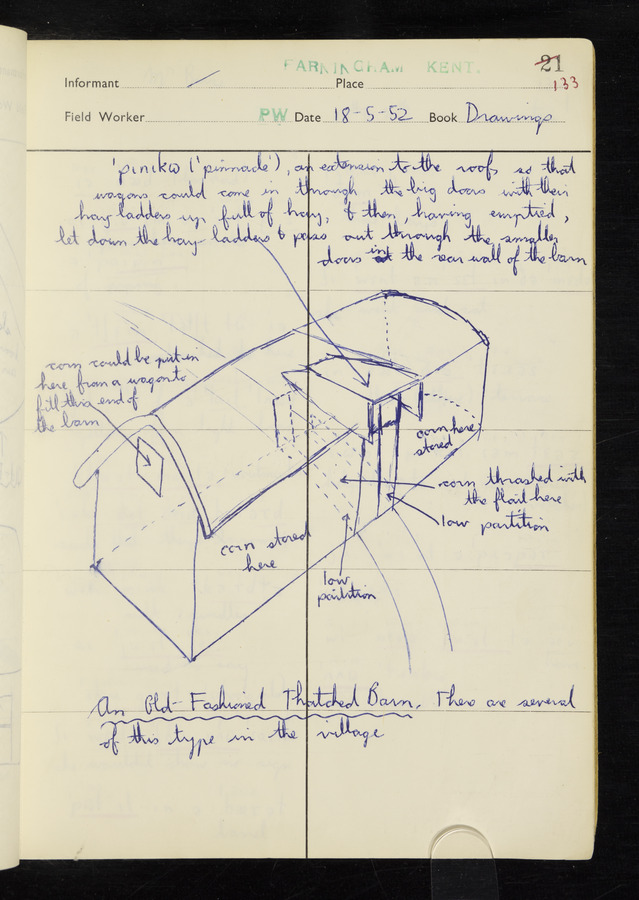 FARNINGHAM KENT.
21
133
Informant
Place
Field Worker
PW
Date 18-5-52
Book Drawings
('pinnade'), an extension to the roof, so that
wagons could come in through the big doors with their
hay ladders up, full of hay, & then, having emptied,
let down the hay-ladders & pass out through the smaller
doors in the rear wall of the barn
corn could be put in
here from a wagon to
fill this end of
the barn
corn here
stored
corn thrashed with
the flail here
low partition
corn stored
here
low
partition
An Old-Fashioned Thatched Barn. There are several
of this type in the village